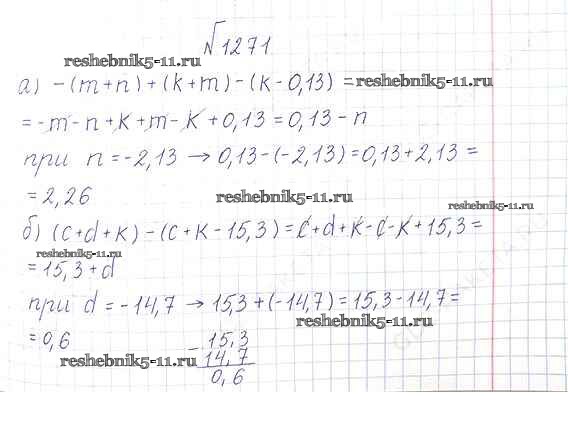 №1271
reshebnik5-11.ru
а) -(m+n)+(k+m)-(k-0,13) =
reshebnik5-11.ru
= -m-n+k+m-k+0,13=0,13-n
при n=-2,13 → 0,13-(-2,13)=0,13+2,13=
=2,26
reshebnik5-11.ru
reshebnik5-11.ru
б) (c+d+k)-(c+k-15,3)=c+d+k-c-k+15,3=
reshebnik5-11.ru
=15,3+d
при d=-14,7 → 15,3+(-14,7)=15,3-14,7=
reshebnik5-11.ru
=0,6
15,3
reshebnik5-11.ru
- 14,7
0,6